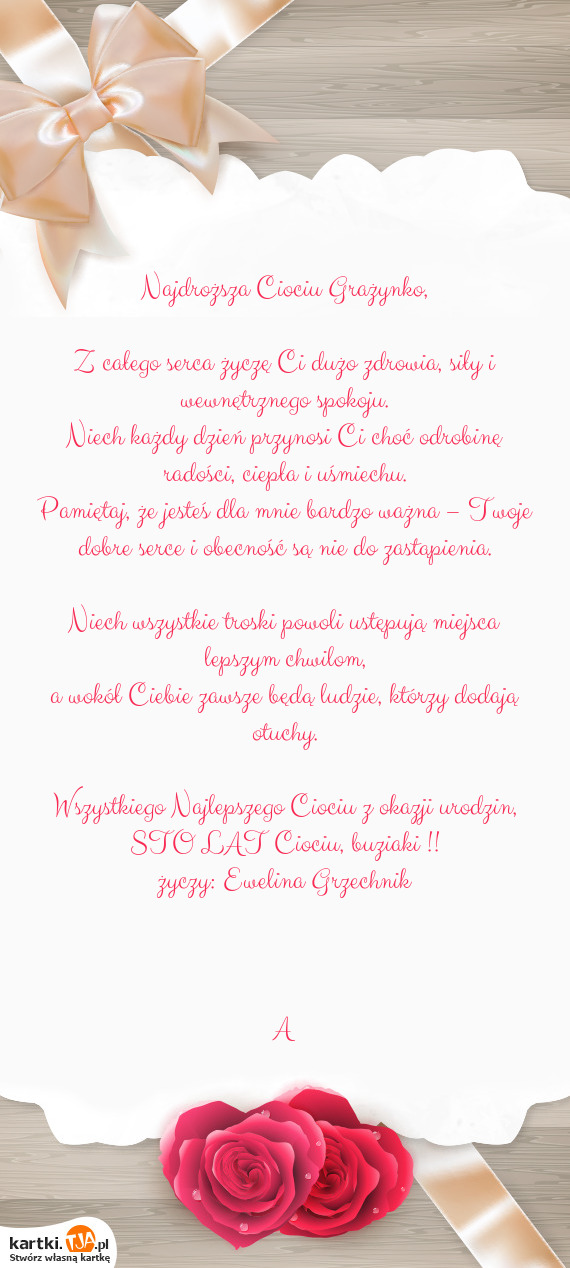 Najdroższa Ciociu Grażynko,
Z całego serca życzę Ci dużo zdrowia, siły i
wewnętrznego spokoju.
Niech każdy dzień przynosi Ci choć odrobinę
radości, ciepła i uśmiechu.
Pamiętaj, że jesteś dla mnie bardzo ważna – Twoje
dobre serce i obecność są nie do zastąpienia.
Niech wszystkie troski powoli ustępują miejsca
lepszym chwilom,
a wokół Ciebie zawsze będą ludzie, którzy dodają
otuchy.
Wszystkiego Najlepszego Ciociu z okazji urodzin,
STO LAT Ciociu, buziaki !!
życzy: Ewelina Grzechnik
A
kartki.TJA.pl
Stwórz własną kartkę